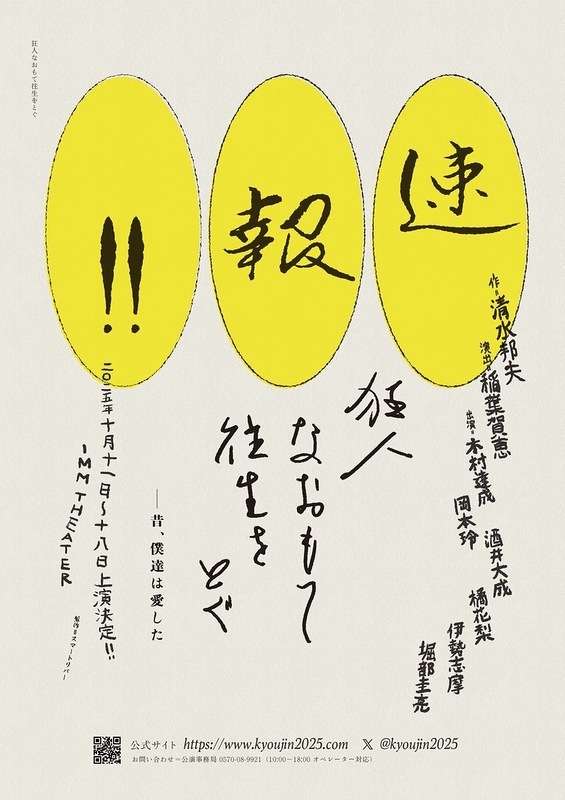 狂人なおもて往生をとぐ
速
報
!!
作=清水邦夫
演出=稲葉賀恵
出演=木村達成
岡本玲
酒井大成
橘花梨
伊勢志摩
堀部圭亮
狂人
なおもて
往生を
とぐ
―昔、僕達は愛した
二〇二五年十月十一日〜十八日上演決定!!
IMM THEATER
製作=スマートリバー
公式サイト https://www.kyoujin2025.com X @kyoujin2025
お問い合わせ=公演事務局 0570-08-9921(10:00〜18:00 オペレーター対応)